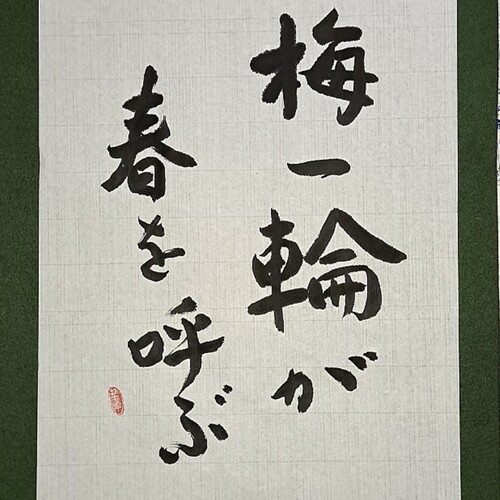 梅一輪が
春を呼ぶ